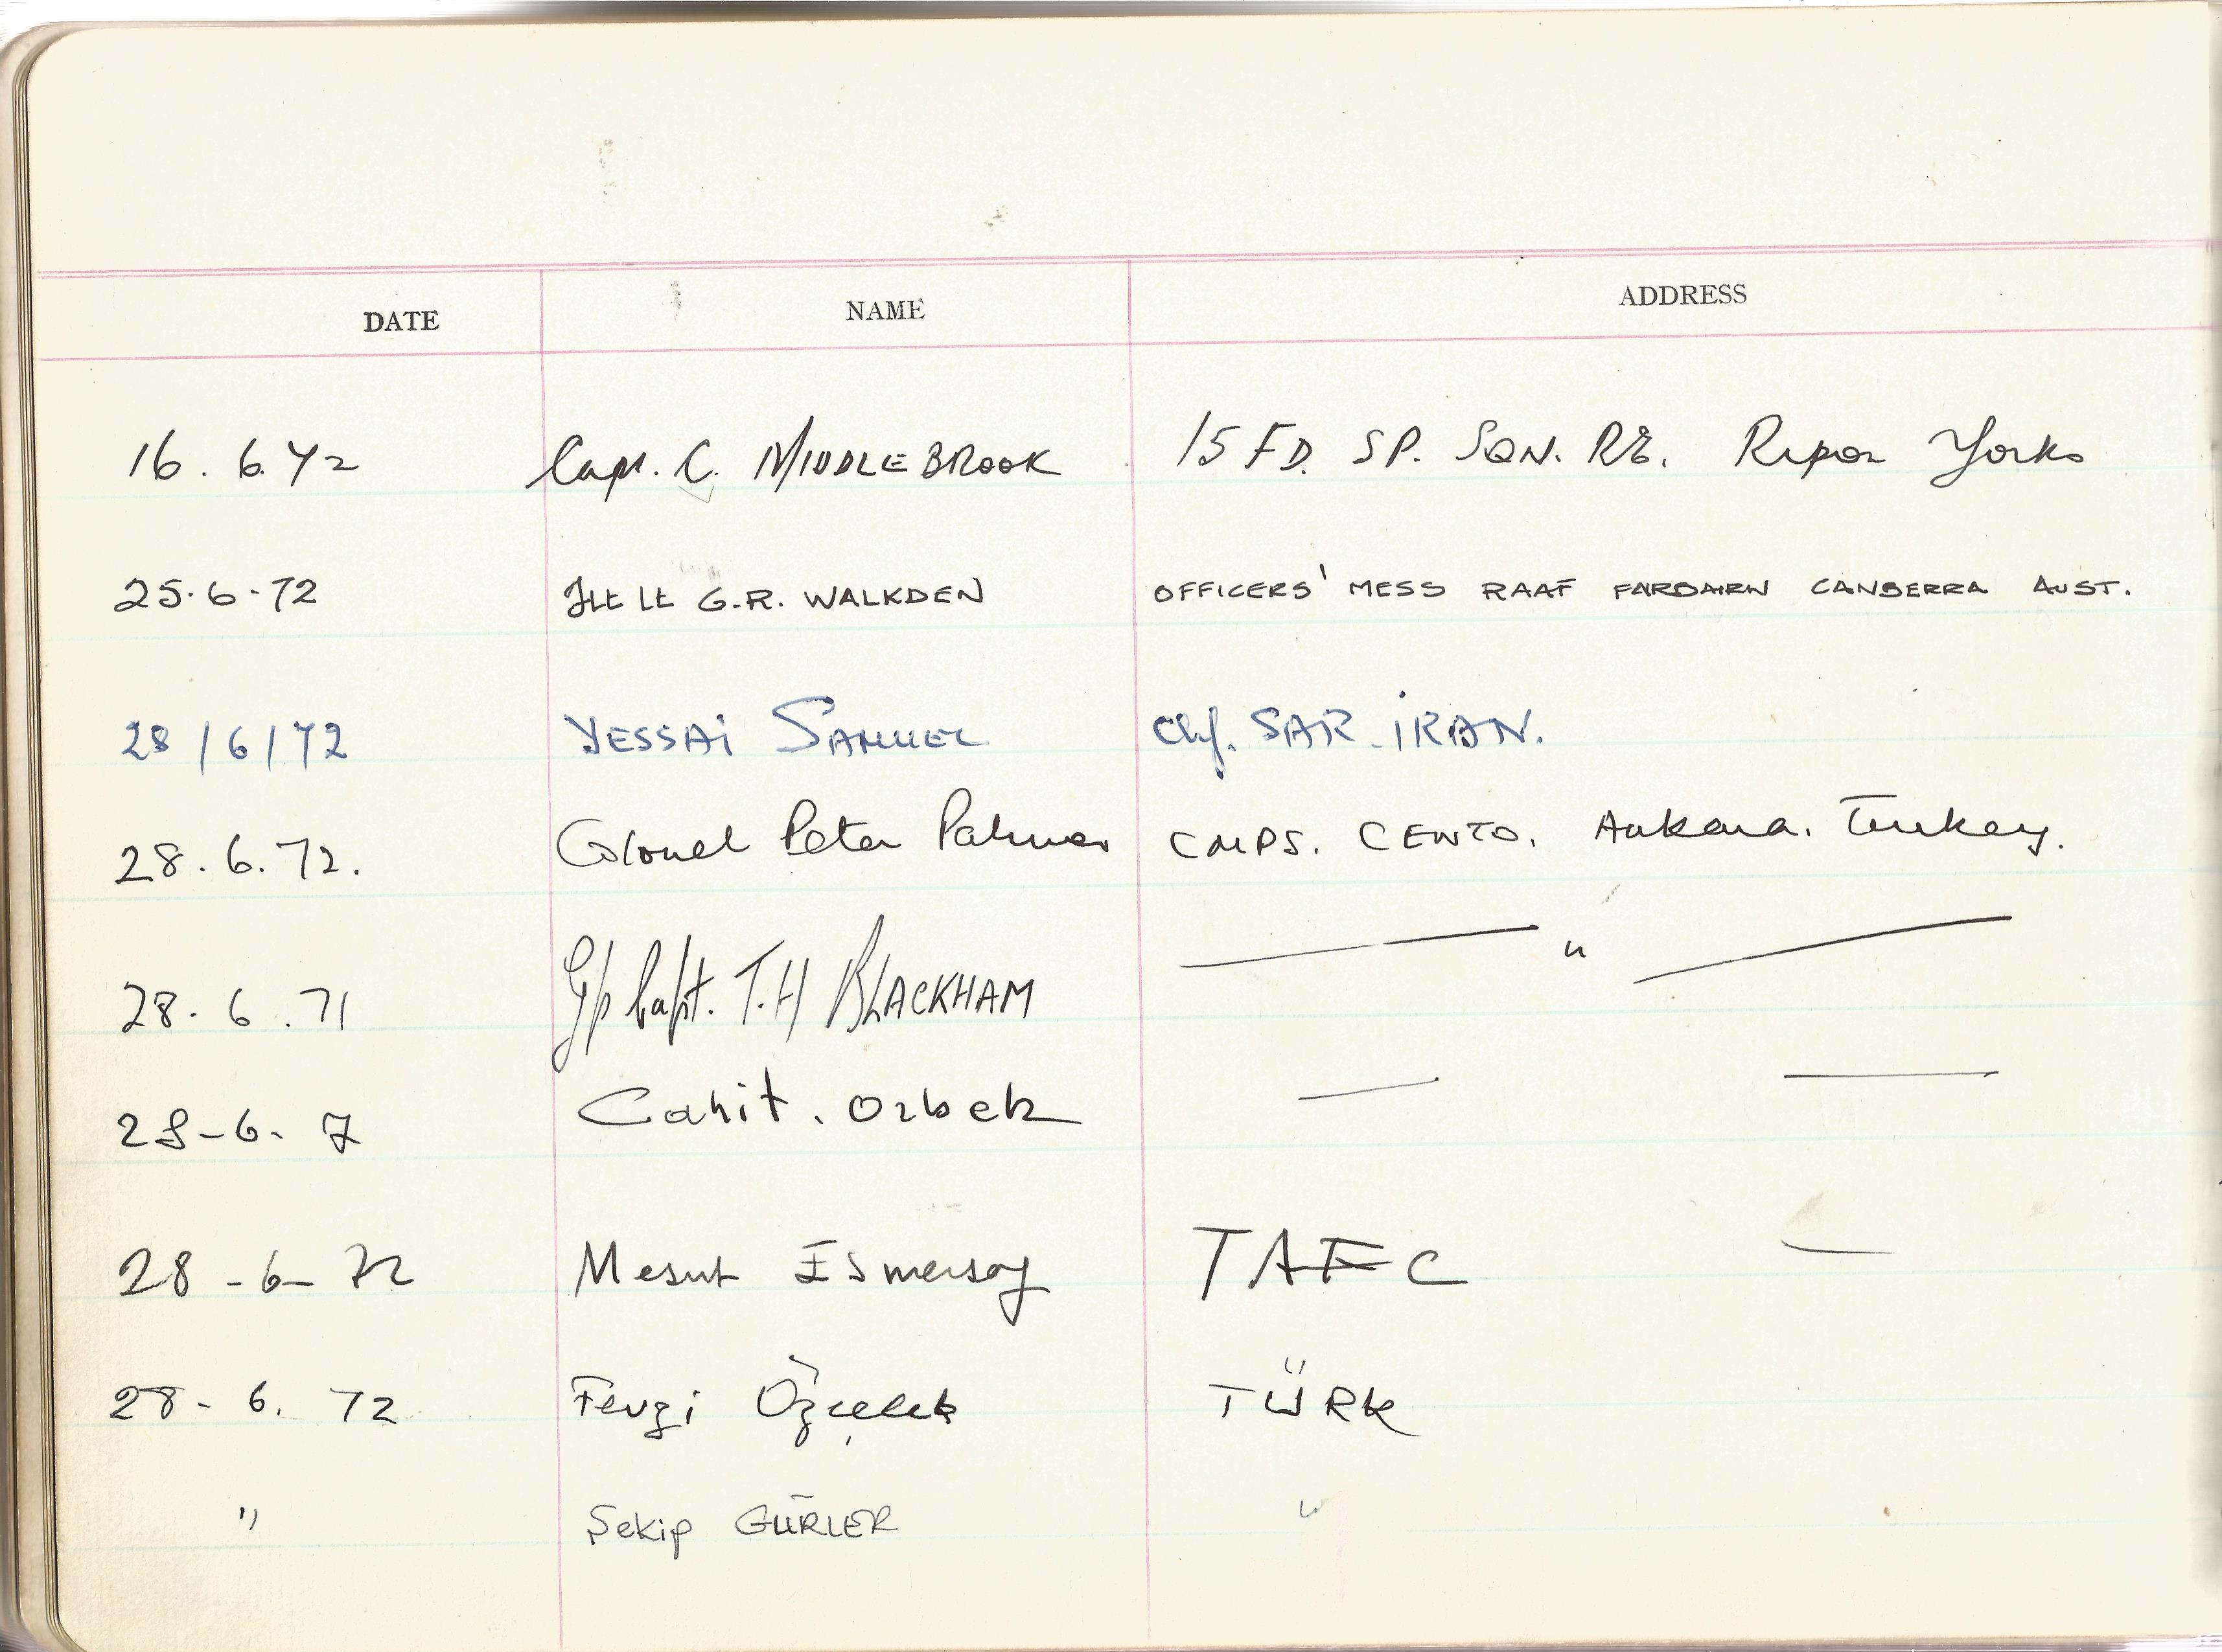 DATE NAME ADDRESS
16.6.72 Capt. C. MIDDLEBROOK 15 FD. SP. SQN. RE. Ripon Yorks
25.6.72 Flt Lt G.R. WALKDEN OFFICERS' MESS RAAF FAIRBAIRN CANBERRA AUST.
28/6/72 YESSAi SAMUEL SAR. iRAN.
28.6.72. Colonel Peter Palmer CMPS. CENTO. Ankara. Turkey.
28.6.71 Gp Capt. T.H BLACKHAM — " —
28-6-7 Cahit. Ozbek — —
28-6-72 Mesut Esmersoy TAFC
28-6.72 Fevzi Özçelek TÜRK
" Şekip GÜRLER "